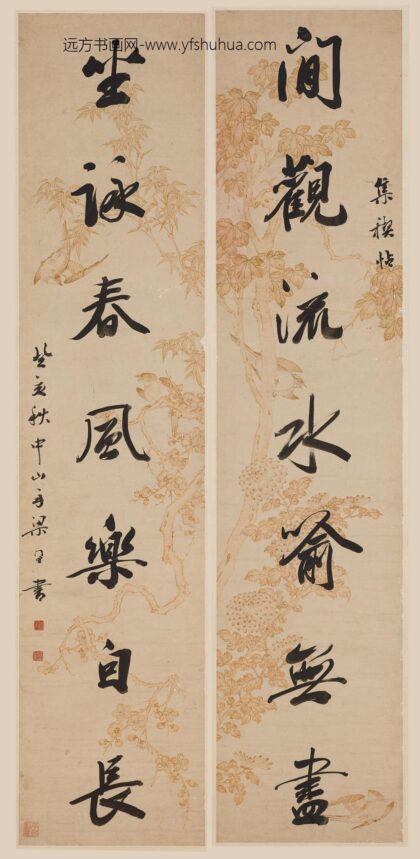 远方书画网-www.yfshuhua.com
集禊帖
閒觀流水喻無盡
坐詠春風樂自長
癸亥秋中山舟梁同書